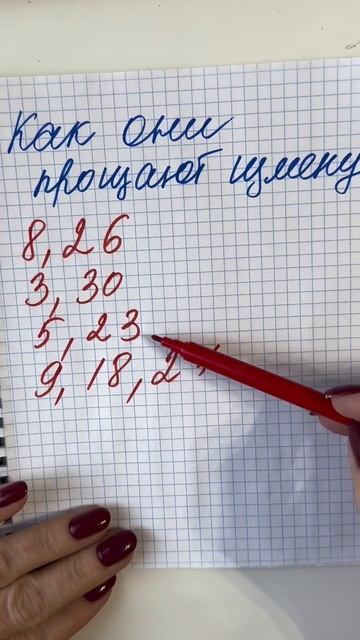 Как они
прощают измену
8, 26
3, 30
5, 23
9, 18, 2